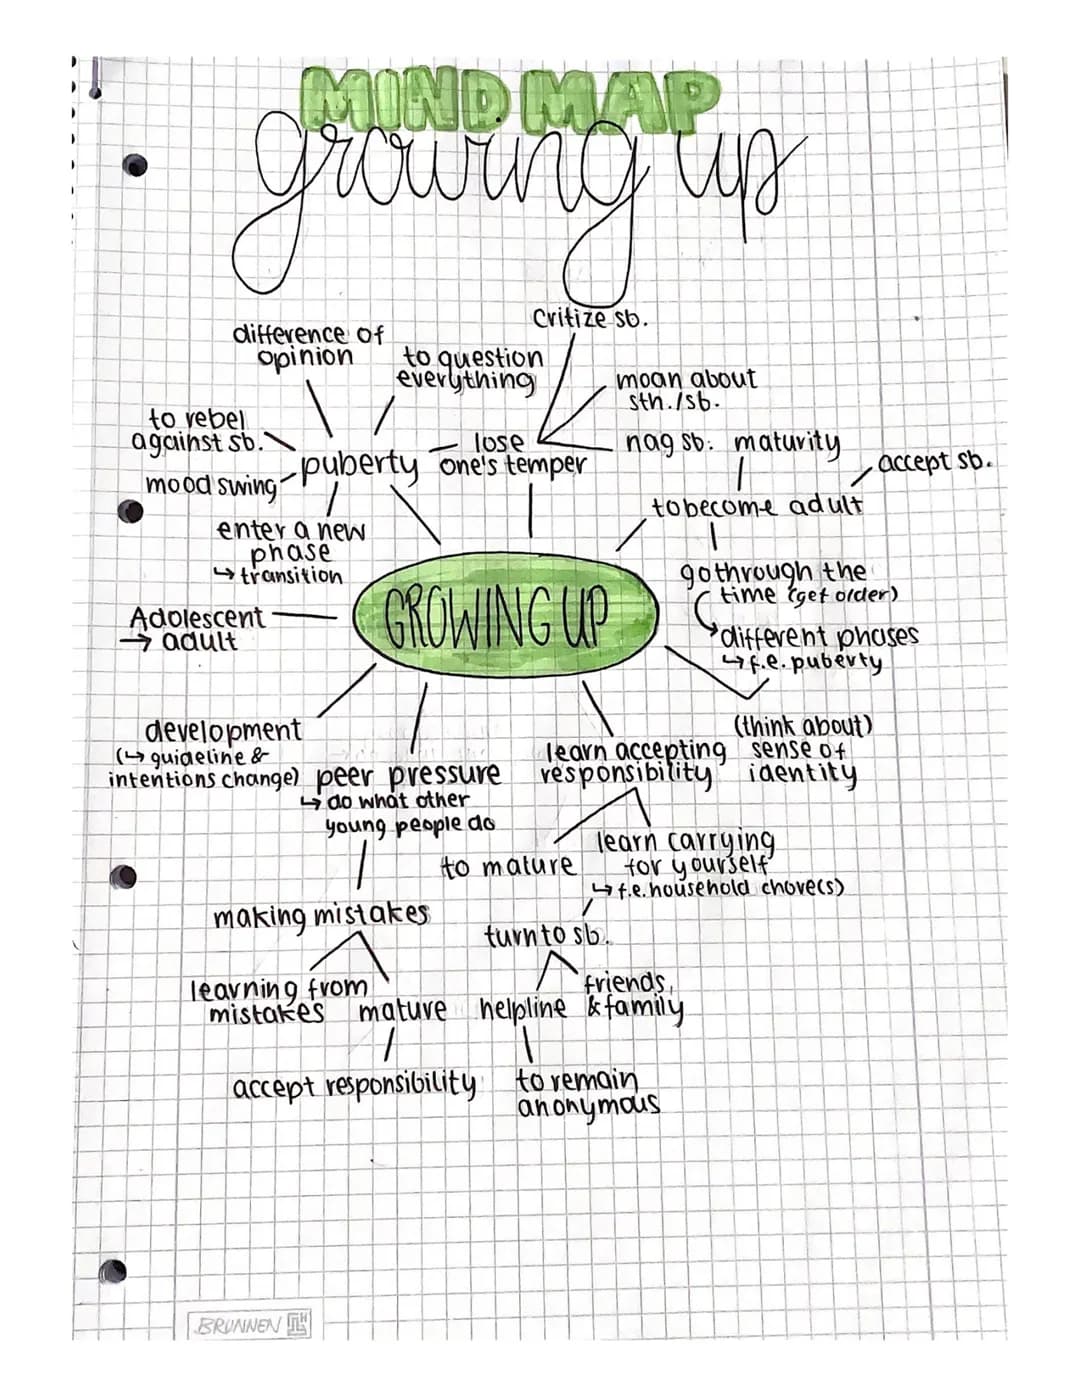 MIND MAP
growing up
Critize sb.
difference of
opinion
to question
everything
moan about
sth./sb.
to rebel
against sb.
lose
one's temper
nag sb.
maturity
accept sb.
puberty
mood swing
to become adult
enter a new
phase
↳ transition
go through the
time (get older)
GROWING UP
Adolescent
→ adult
different phases
↳ f.e. puberty
development
(↳ guideline &
intentions change)
(think about)
sense of
identity
learn accepting
responsibility
peer pressure
↳ do what other
young people do
learn carrying
for yourself
↳ f.e. household chore(s)
to mature
making mistakes
turn to sb.
learning from
mistakes
mature
helpline
friends,
& family
accept responsibility
to remain
anonymous
BRUNNEN